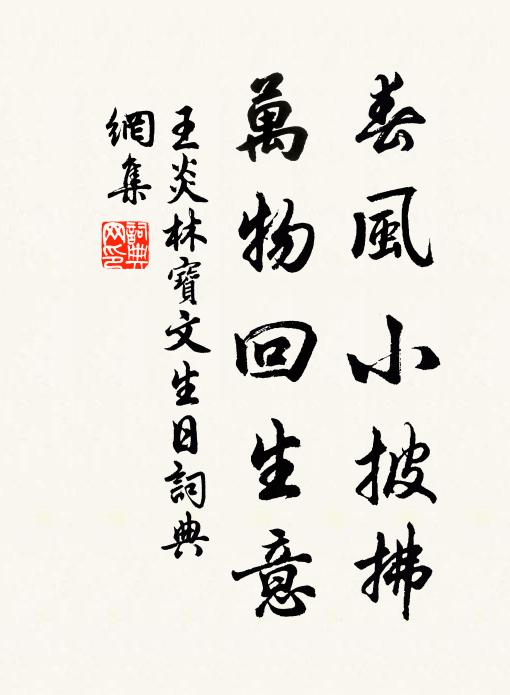 春風小披拂
萬物回生意
王炎林寶文生日詞典
網集
詞典網印